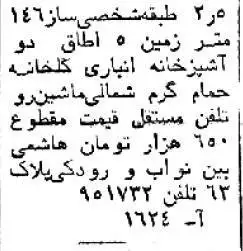 ۲٫۵ طبقه شخصی ساز ۱۴۶
متر زمین ۵ اطاق دو
آشپزخانه انباری گلخانه
حمام گرم شمالی ماشین رو
تلفن مستقل قیمت مقطوع
۶۵۰ هزار تومان هاشمی
بین نواب و رودکی پلاک
۶۳ تلفن ۹۵۱۷۳۲
آ- ۱۶۲۴